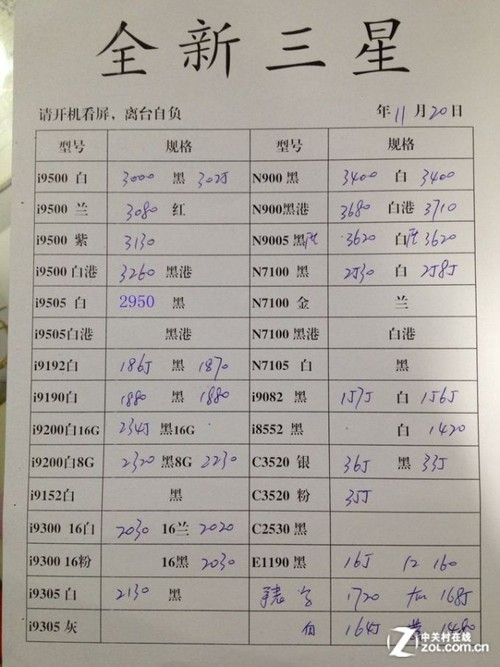 全新三星
请开机看屏，离台自负 年11月20日
型号 规格 型号 规格
i9500 白 3000 黑 3025 N900 黑 3400 白 3400
i9500 兰 3080 红 N900黑港 3680 白港 3710
i9500 紫 3130 N9005 黑 3620 白 3620
i9500 白港 3260 黑港 N7100 黑 2530 白 2585
i9505 白 2950 黑 N7100 金 兰
i9505白港 黑港 N7100 黑港 白港
i9192白 1865 黑 1870 N7105 白 黑
i9190白 1880 黑 1880 i9082 黑 1575 白 1565
i9200白16G 2345 黑16G i8552 黑 白 1420
i9200白8G 2320 黑8G 2230 C3520 银 365 黑 335
i9152白 黑 C3520 粉 355
i9300 16白 2030 16兰 2020 C2530 黑
i9300 16粉 16黑 2030 E1190 黑 165 160
i9305 白 2130 黑 1720 1685
i9305 灰 白 1645 1480
Z 中关村在线
zol.com.cn